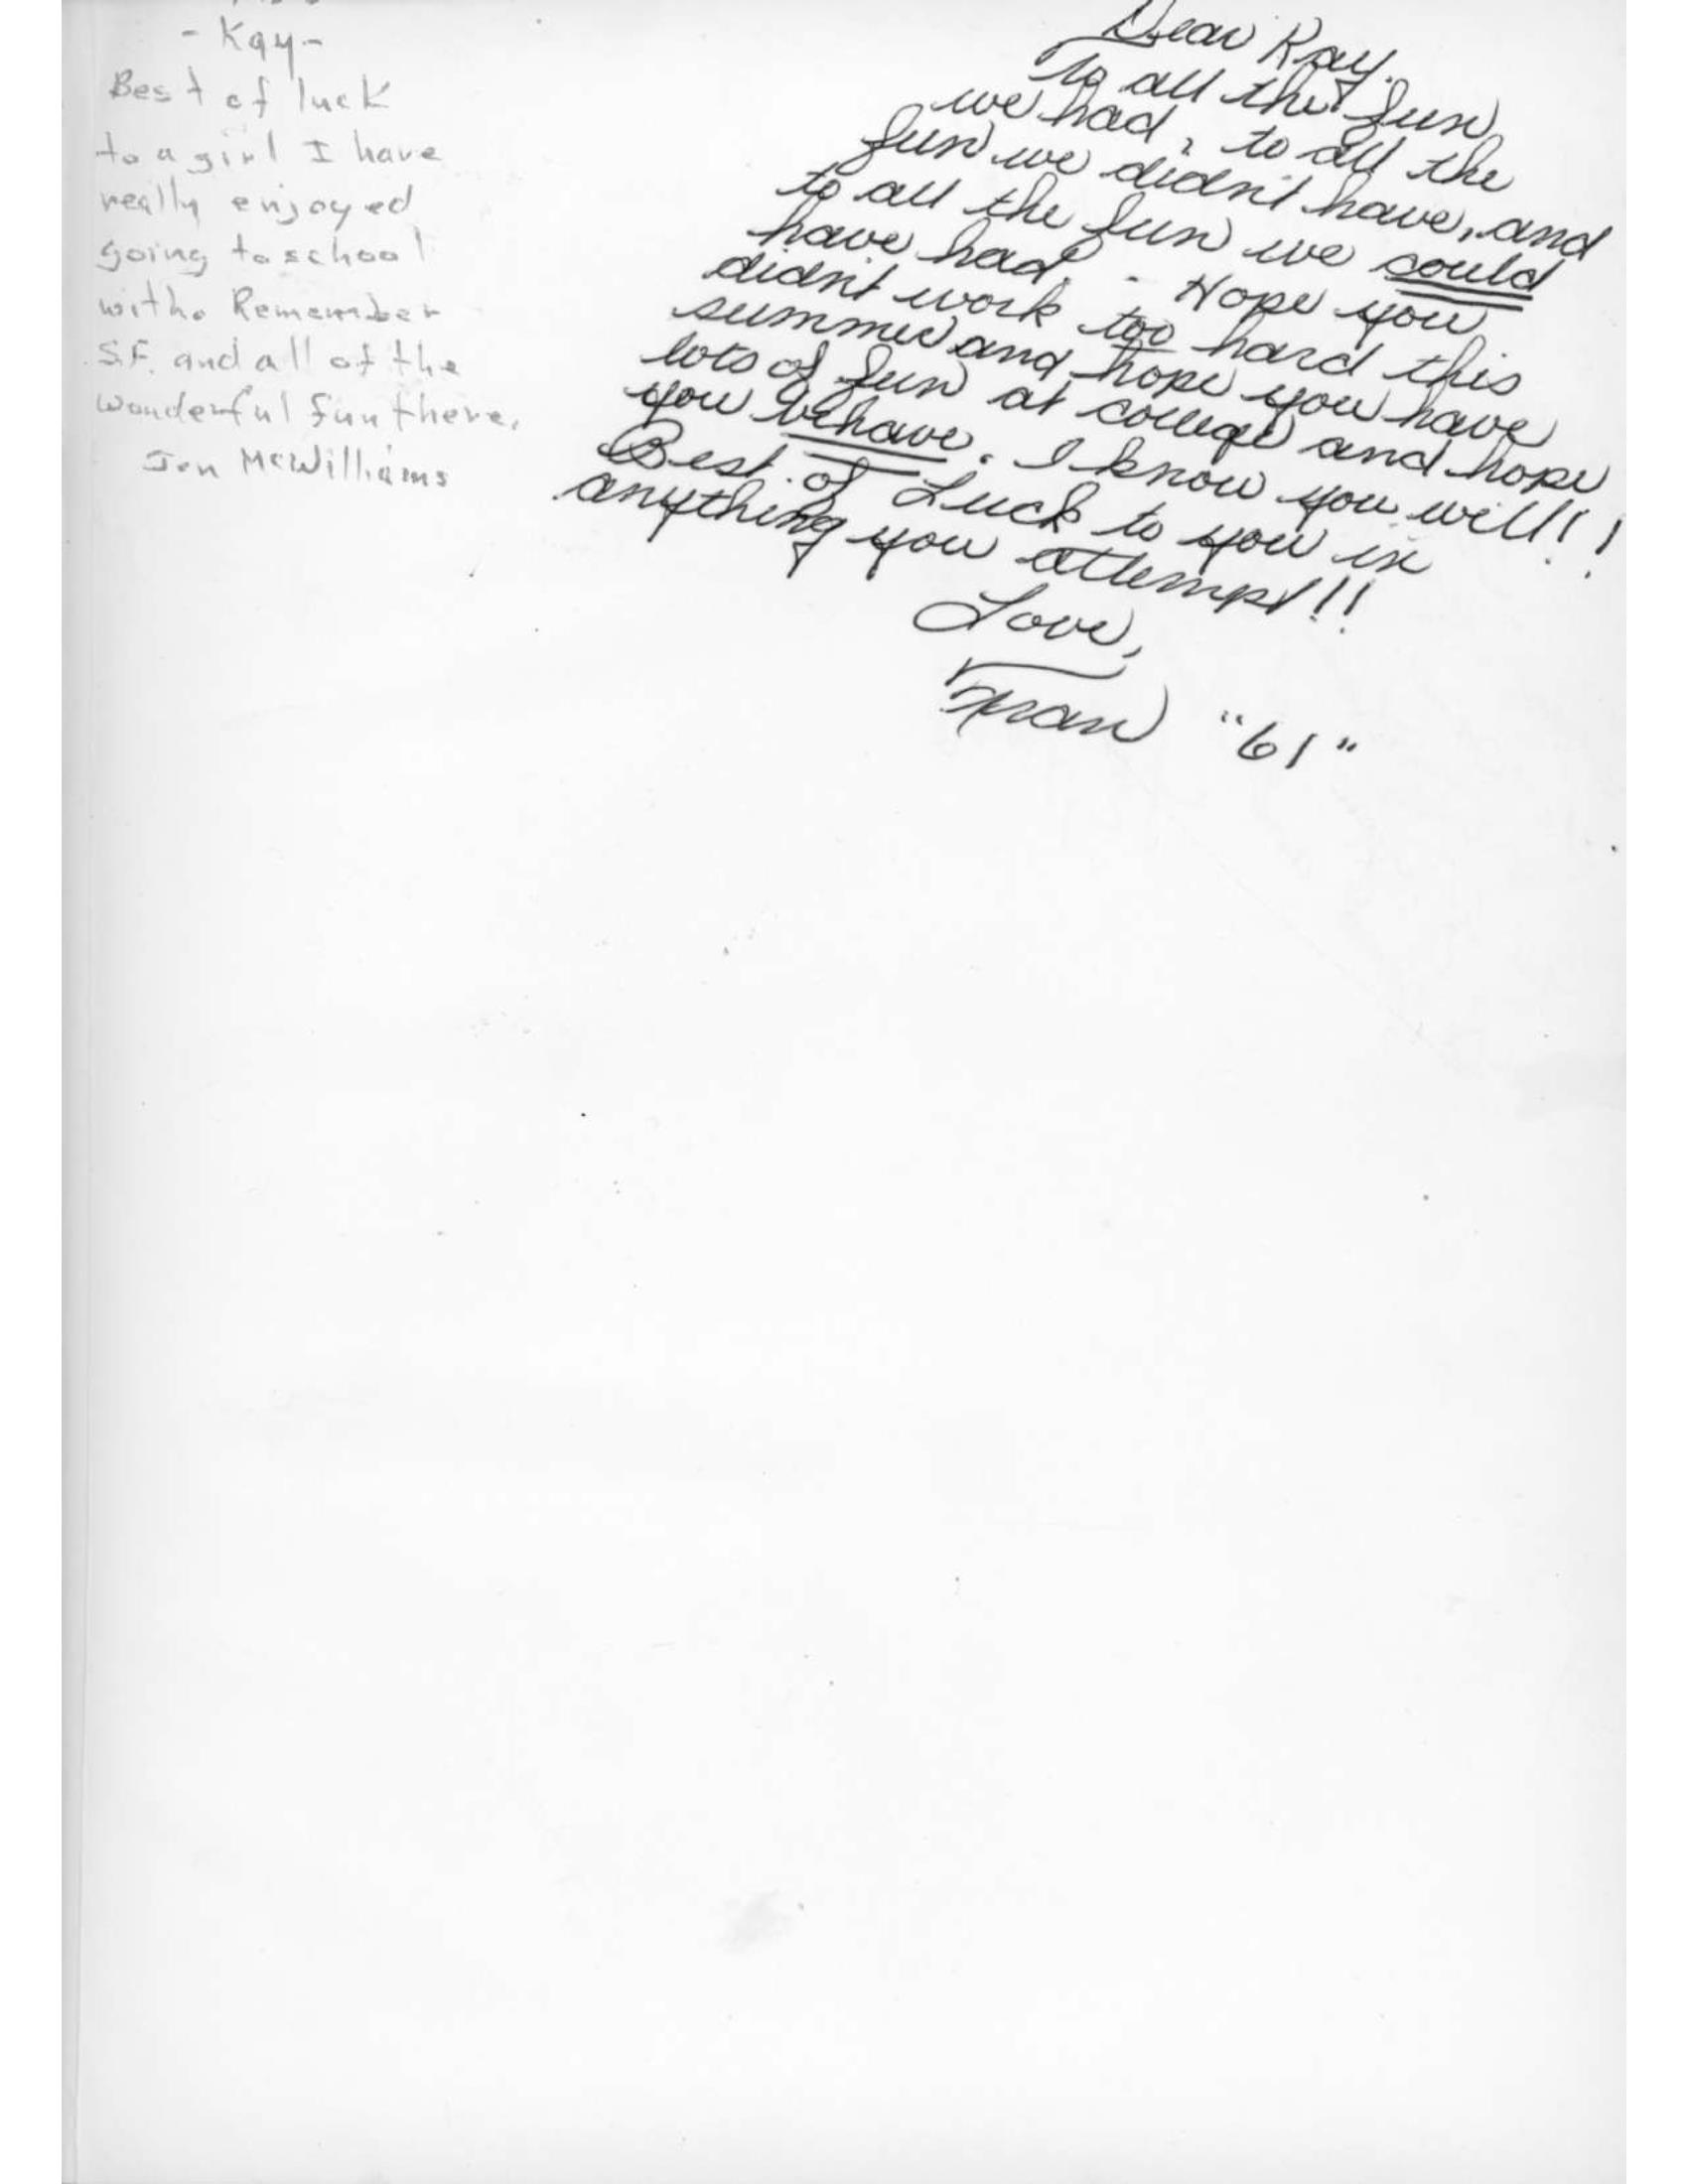 - Kay -
Best of luck
to a girl I have
really enjoyed
going to school
with. Remember
S.F. and all of the
wonderful fun there.
Jen McWilliams
Dear Kay,
To all the fun
we had, to all the
fun we didn't have, and
to all the fun we could
have had. - Hope you
didn't work too hard this
summer and hope you have
lots of fun at college and hope
you behave. I know you will!!
Best of Luck to you in
anything you attempt!!
Love,
Fran "61"